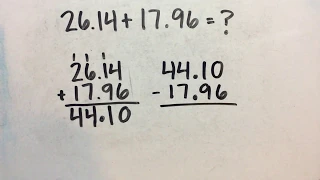 26.14 + 17.96 = ?
1 1 1
26.14 44.10
+ 17.96 - 17.96
44.10